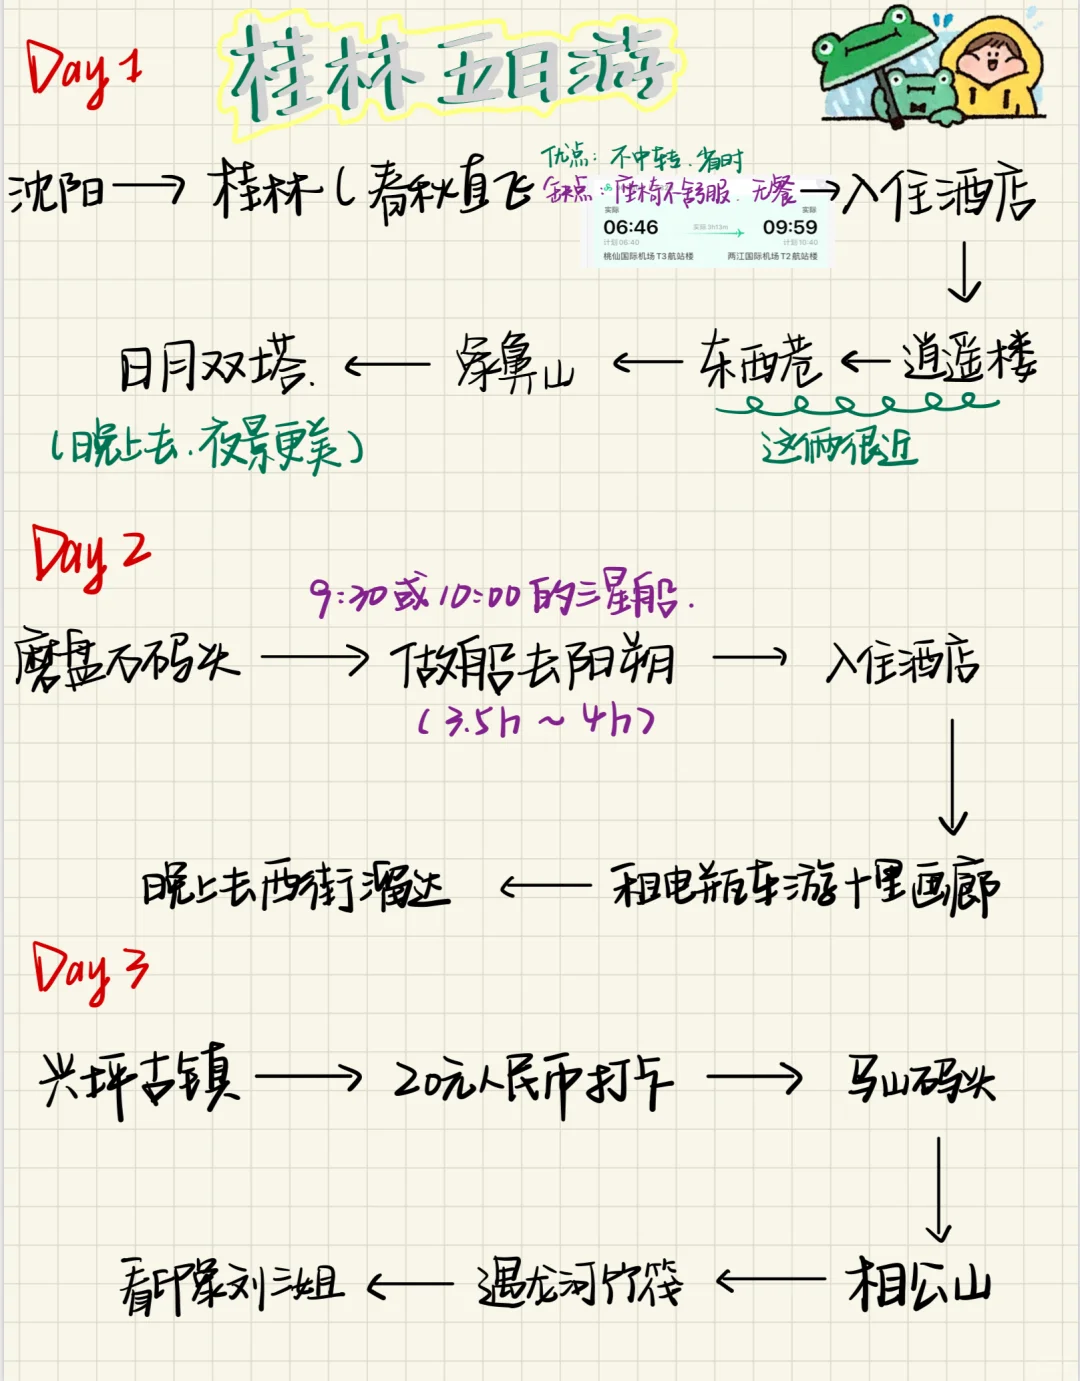 Day 1
桂林五日游
优点：不中转.省时
沈阳→桂林(春秋直飞
缺点：座椅不舒服.无餐
→入住酒店
实际
实际
06:46
实际 3h13m
09:59
计划 06:40
计划 10:40
桃仙国际机场T3航站楼
两江国际机场T2航站楼
日月双塔.←象鼻山←东西巷←逍遥楼
(晚上去.夜景更美)
这俩很近
Day 2
9:30或10:00的三星船.
磨盘石码头→做船去阳朔→入住酒店
(3.5h~4h)
晚上去西街溜达←租电瓶车游十里画廊
Day 3
兴坪古镇→20元人民币打卡→马山码头
看印象刘三姐←遇龙河竹筏←相公山